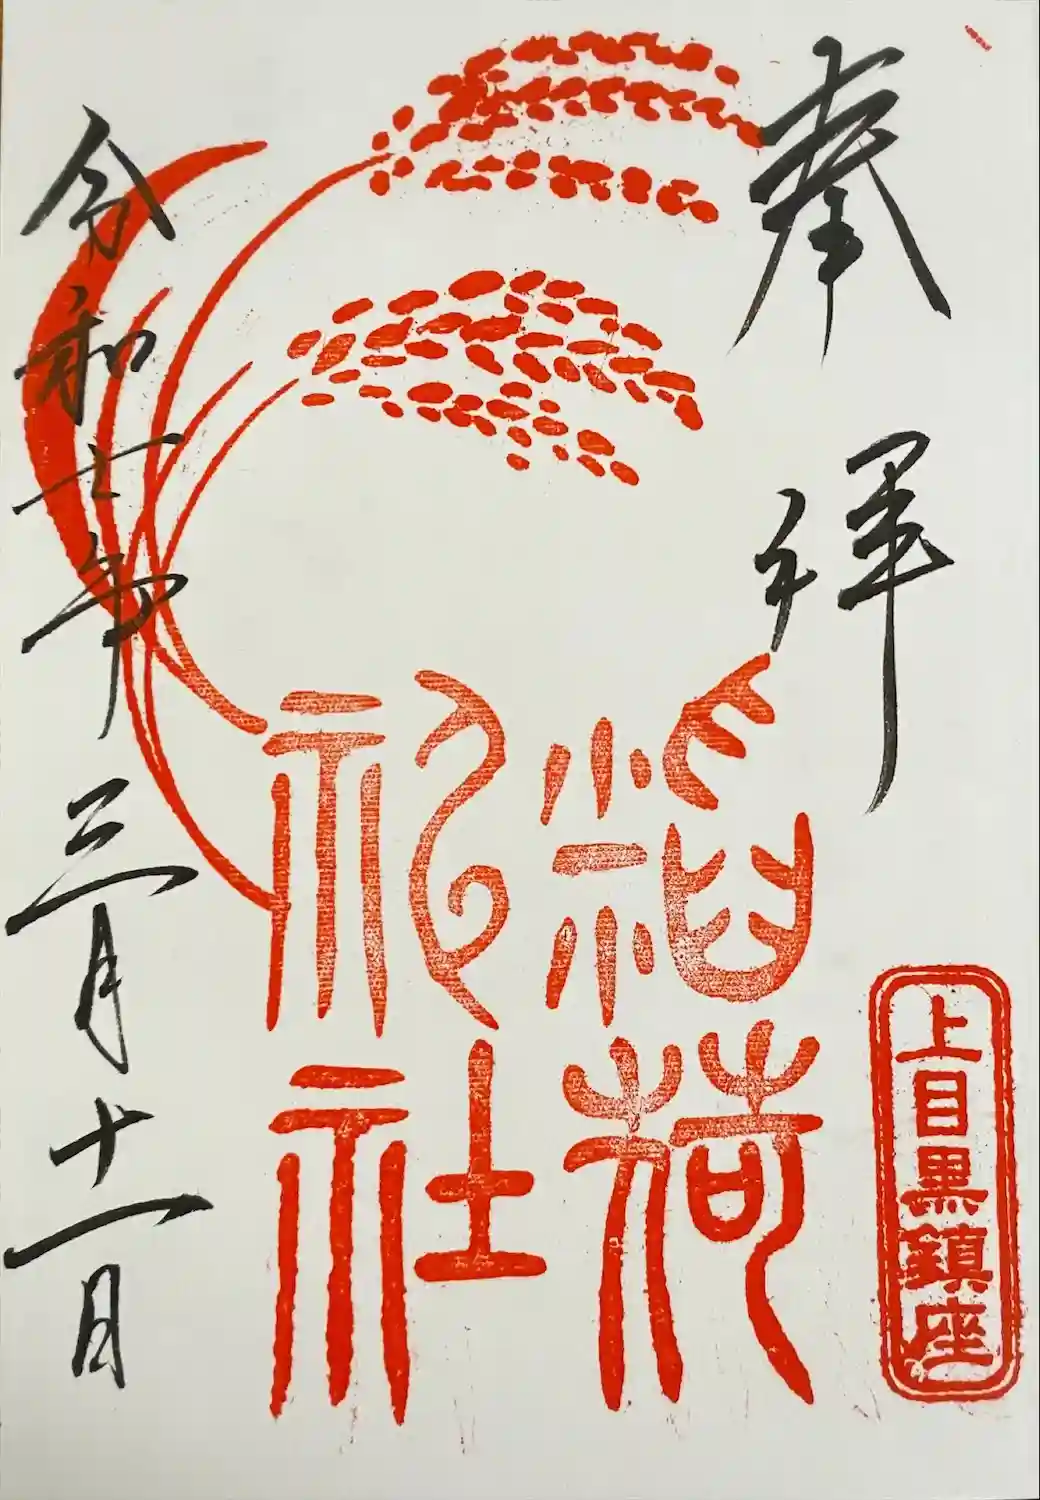 奉拝
上目黒鎮座
稲荷
神社
令和七年三月十一日